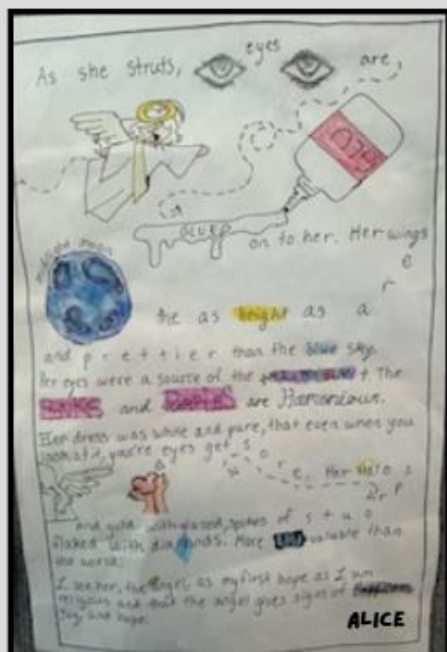 eyes
As she struts, are,
GLU
GLUED
on to her. Her wings
e
midnight moon
r
the as bright as a
and prettier than the blue sky.
Her eyes were a source of the t. The
PINKS and PURPLES are Harmonious.
Her dress was white and pure, that even when you
look at it, you're eyes get s o r e. Her Halo s
and gold with glazed, spikes of s t u d
flaked with diamonds. More valuable than
the world.
I see her, the angel, as my first hope as I am
religious and that the angel gives signs of
Joy, and hope.
ALICE